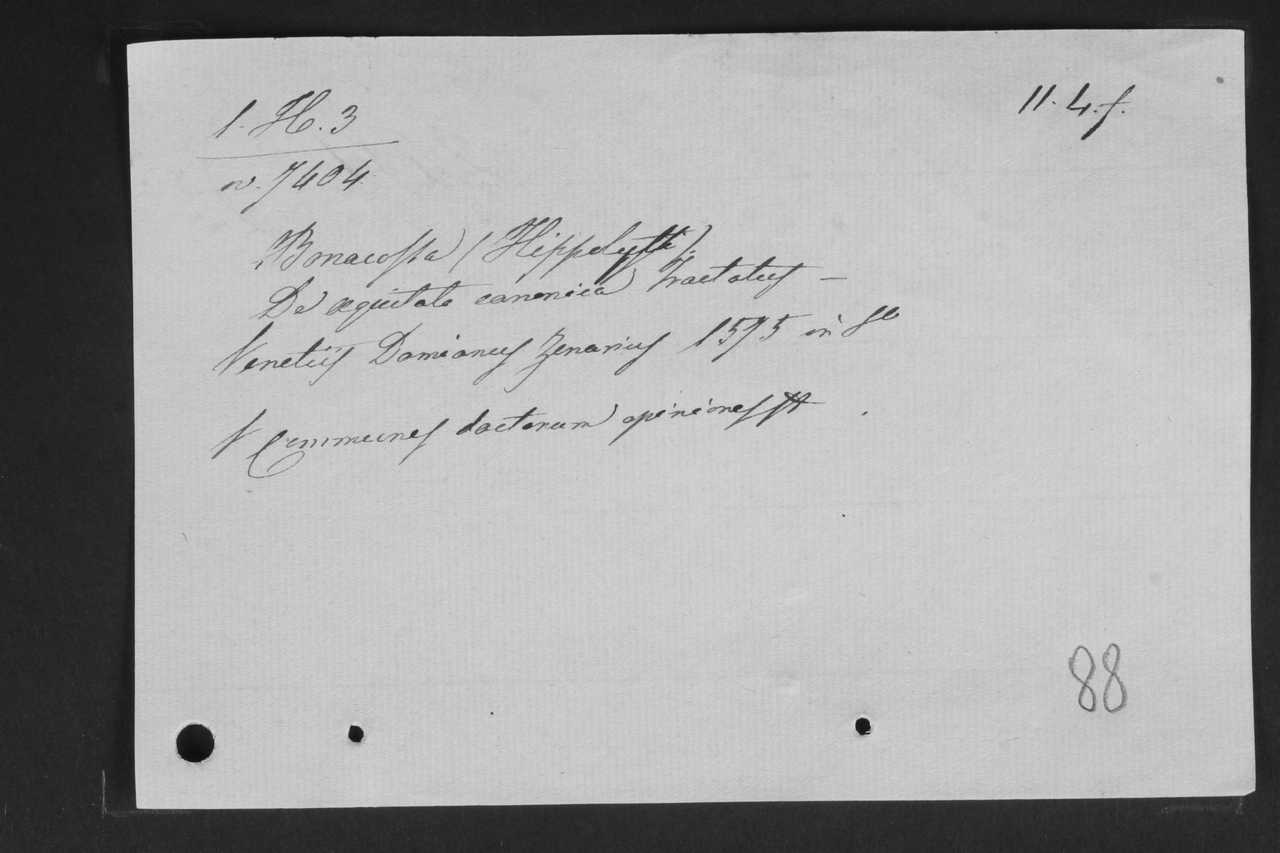 1. H. 3
11. 4. f.
n. 7404
Bonacossa (Hippolyti).
De æquitate canonica Tractatus –
Venetiis Damianus Zenarius 1575 in 8º
V Communes doctorum opiniones
88